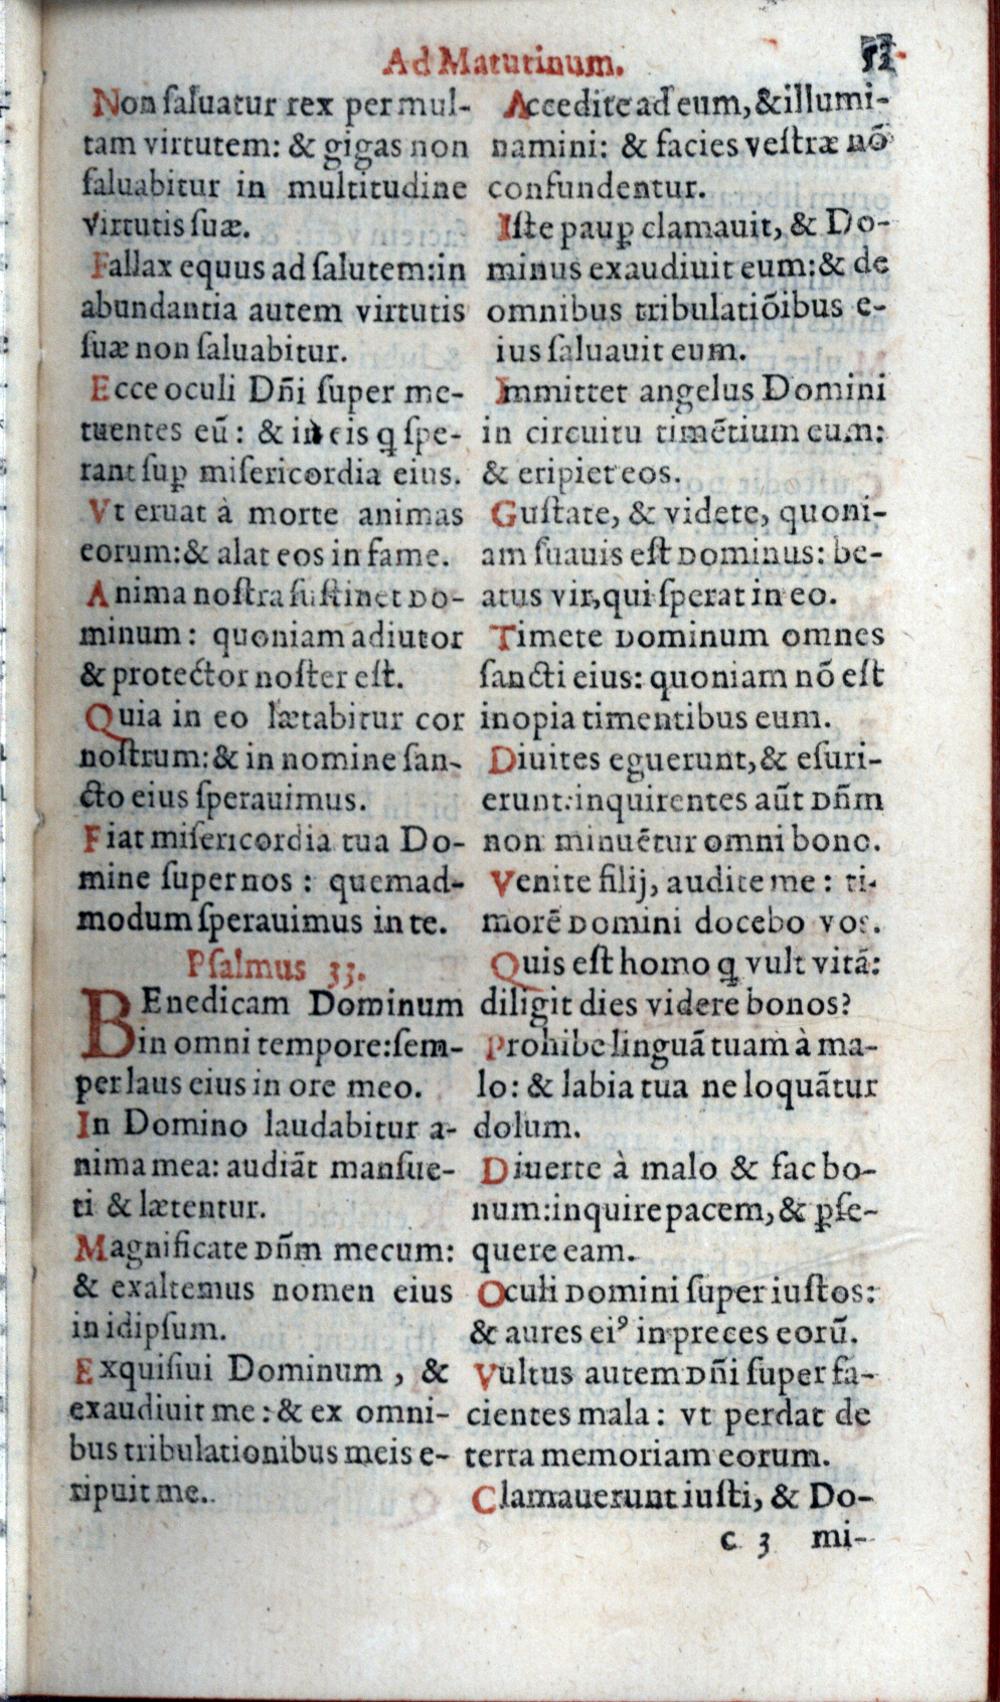 Ad Maturinum. 52
Non ſaluatur rex per mul-
tam virtutem: & gigas non
ſaluabitur in multitudine
virtutis ſuæ.
Fallax equus ad ſalutem: in
abundantia autem virtutis
ſuæ non ſaluabitur.
Ecce oculi Dñi ſuper me-
tuentes eū: & in eis ꝗ ſpe-
rant ſuꝑ miſericordia eius.
Vt eruat à morte animas
eorum: & alat eos in fame.
Anima noſtra ſuſtinet Do-
minum: quoniam adiutor
& protector noſter eſt.
Quia in eo lætabitur cor
noſtrum: & in nomine ſan-
cto eius ſperauimus.
Fiat miſericordia tua Do-
mine ſuper nos: quemad-
modum ſperauimus in te.
Pſalmus 33.
BEnedicam Dominum
in omni tempore: ſem-
per laus eius in ore meo.
In Domino laudabitur a-
nima mea: audiāt manſue-
ti & lætentur.
Magnificate Dñm mecum:
& exaltemus nomen eius
in idipſum.
Exquiſiui Dominum, &
exaudiuit me: & ex omni-
bus tribulationibus meis e-
ripuit me.
Accedite ad eum, & illumi-
namini: & facies veſtræ nō
confundentur.
Iſte pauꝑ clamauit, & Do-
minus exaudiuit eum: & de
omnibus tribulatiōibus e-
ius ſaluauit eum.
Immittet angelus Domini
in circuitu timētium eum:
& eripiet eos.
Guſtate, & videte, quoni-
am ſuauis eſt Dominus: be-
atus vir, qui ſperat in eo.
Timete Dominum omnes
ſancti eius: quoniam nō eſt
inopia timentibus eum.
Diuites eguerunt, & eſuri-
erunt: inquirentes aūt Dñm
non minuētur omni bono.
Venite filij, audite me: ti-
morē Domini docebo vos.
Quis eſt homo ꝗ vult vitā:
diligit dies videre bonos?
Prohibe linguā tuam à ma-
lo: & labia tua ne loquātur
dolum.
Diuerte à malo & fac bo-
num: inquire pacem, & ꝑſe-
quere eam.
Oculi Domini ſuper iuſtos:
& aures eiꝰ in preces eorū.
Vultus autem Dñi ſuper fa-
cientes mala: vt perdat de
terra memoriam eorum.
Clamauerunt iuſti, & Do-
c 3 mi-